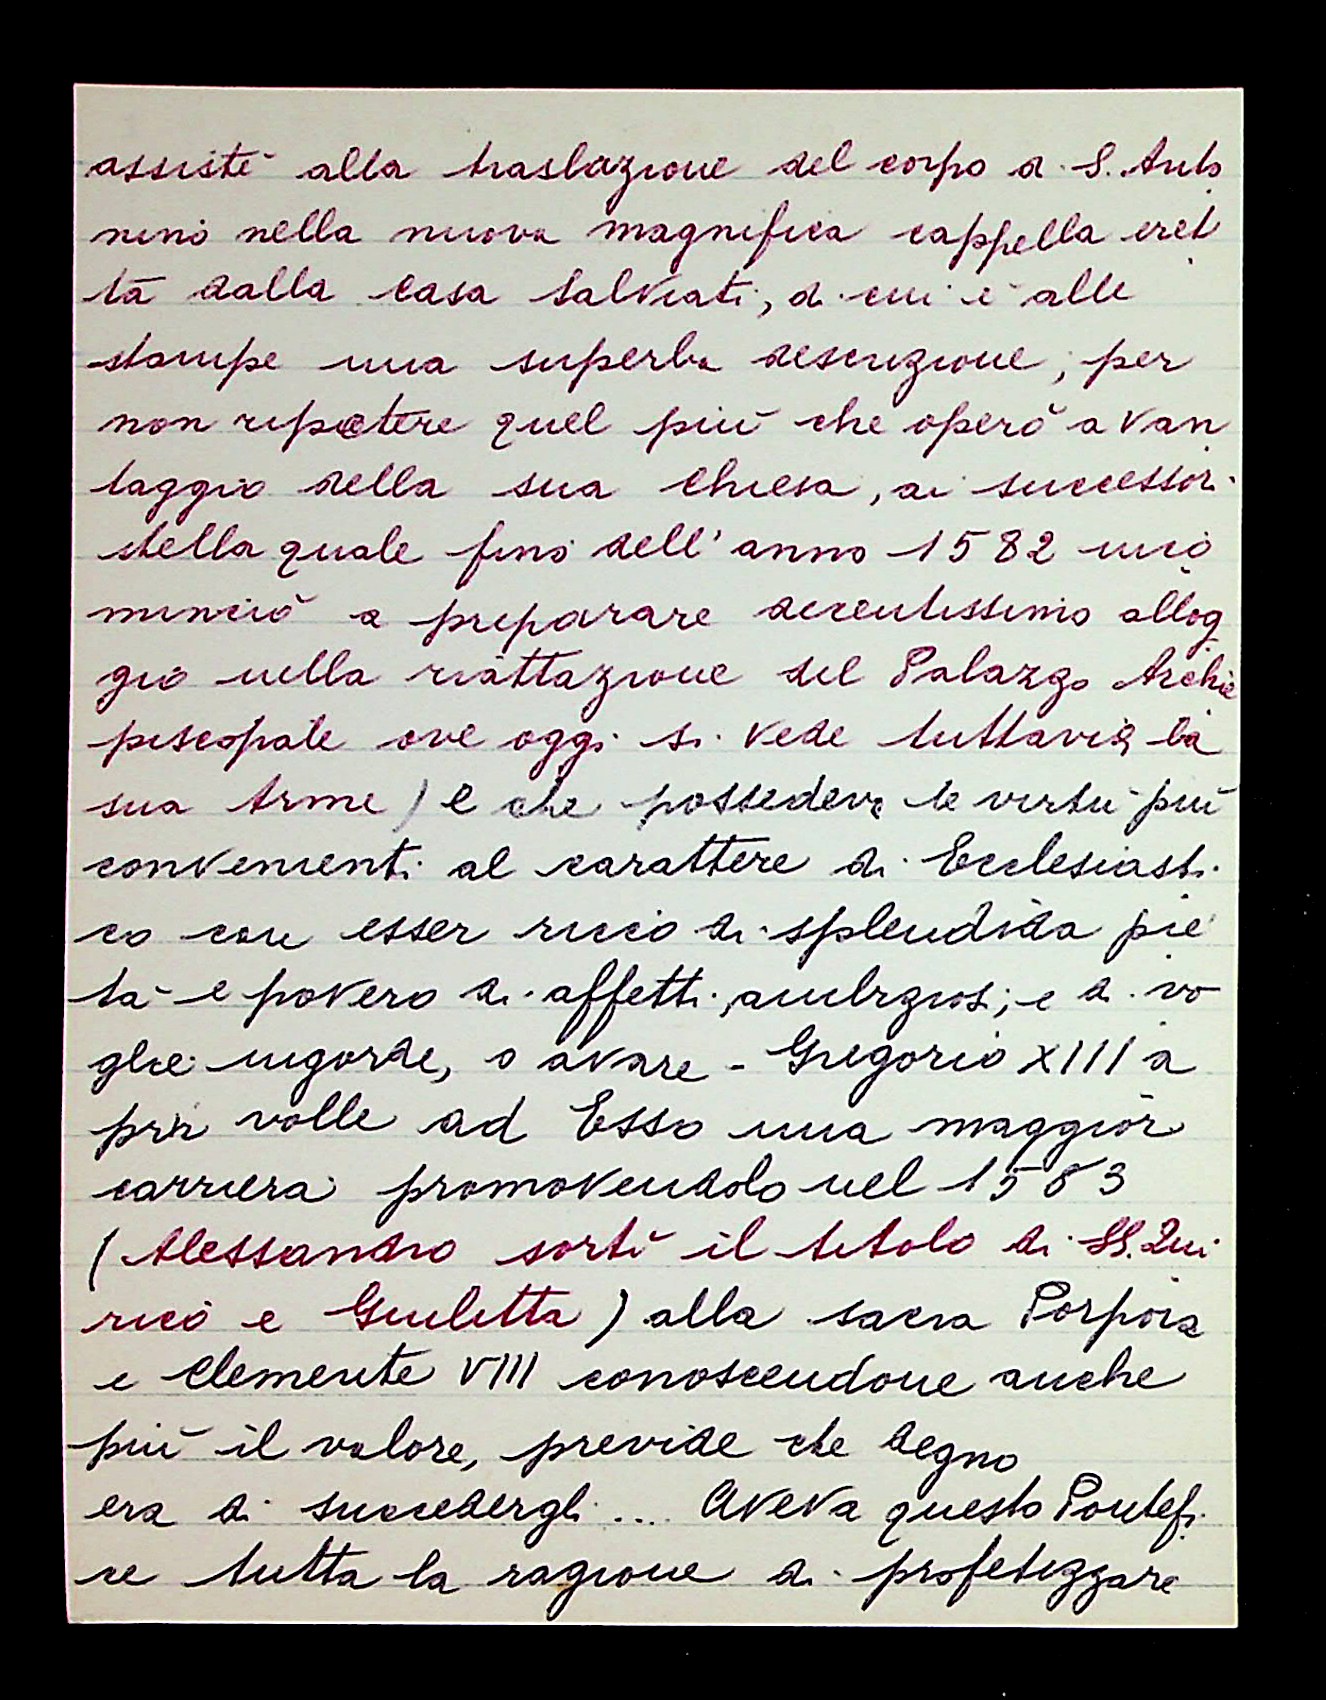 assistè alla traslazione del corpo di S. Anto
nino nella nuova magnifica cappella eret
ta dalla Casa Salviati, di cui è alle
stampe una superba descrizione, per
non ripetere quel più che operò a van
taggio della sua Chiesa, ai successori
della quale fino dell'anno 1582 inco
minciò a preparare decentissimo allog
gio nella riattazione del Palazzo Archie
piscopale ove oggi si vede tuttavia la
sua Arme) e che possedeva le virtù più
convenienti al carattere di Ecclesiasti
co con esser ricco di splendida pie
tà e povero di affetti ambiziosi, e di vo
glie ingorde, o avare - Gregorio XIII a
prir volle ad Esso una maggior
carriera promovendolo nel 1583
(Alessandro sortì il titolo di SS. Qui
rico e Giulitta) alla sacra Porpora
e Clemente VIII conoscendone anche
più il valore, previde che degno
era di succedergli .... Aveva questo Pontefi
ce tutta la ragione di profetizzare